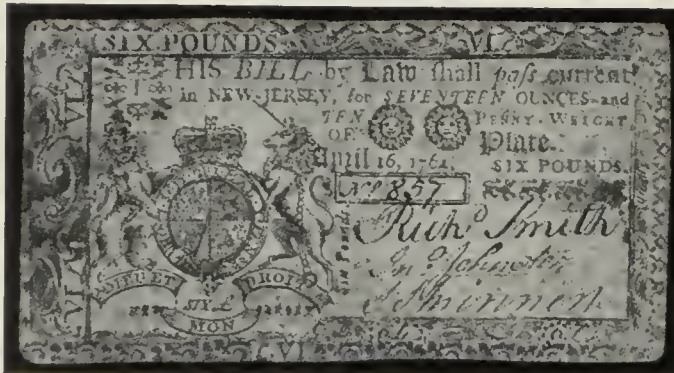 SIX POUNDS VI
THIS BILL by Law shall pass current
in NEW-JERSEY, for SEVENTEEN OUNCES and
TEN PENNY-WEIGHT
OF Plate.
April 16, 1764.
SIX POUNDS.
No 857
Richd Smith
Jno Johnston
Skinner
Six Pounds
DIEU ET DROIT
MON
VI